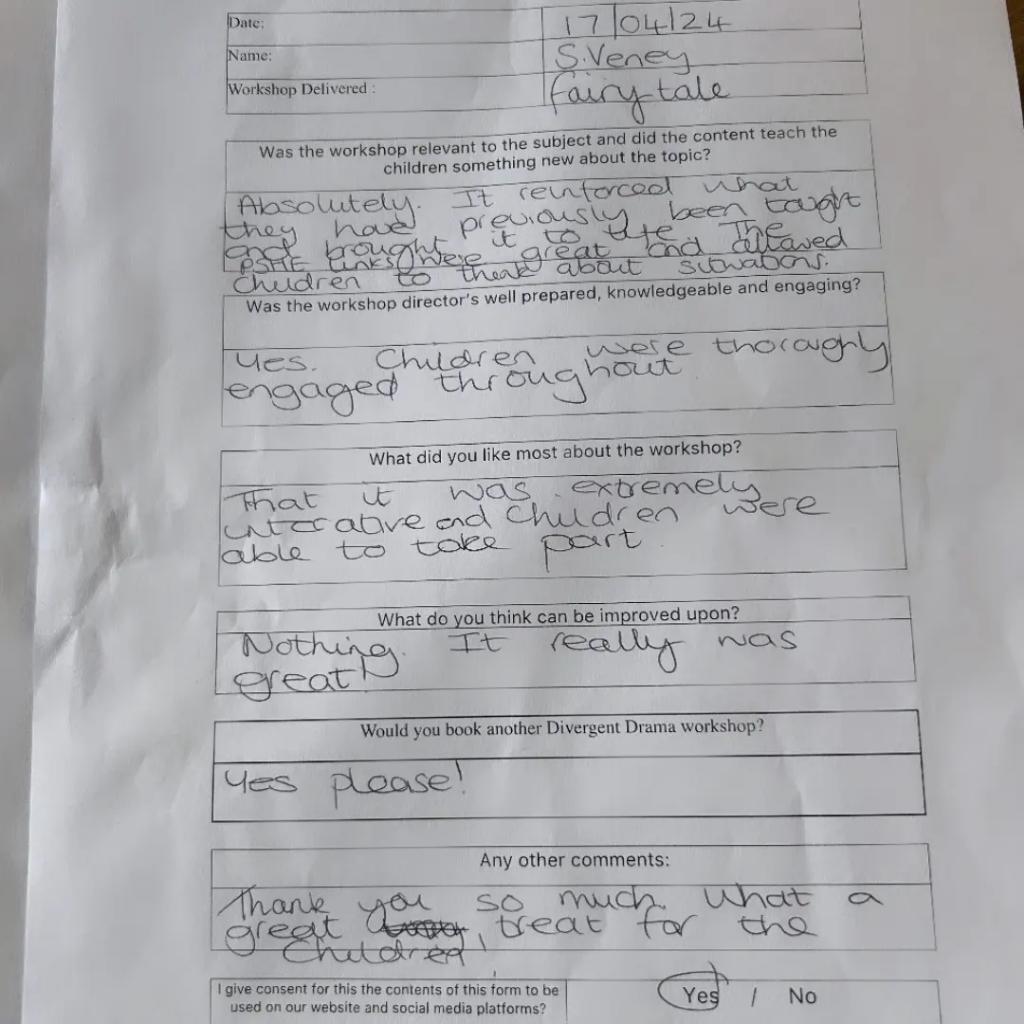 Date: 17/04/24
Name: S.Veney
Workshop Delivered : fairytale
Was the workshop relevant to the subject and did the content teach the
children something new about the topic?
Absolutely. It reinforced what
they have previously been taught
and brought it to life. The
PSHE links were great and allowed
children to think about situations.
Was the workshop director's well prepared, knowledgeable and engaging?
Yes. Children were thoroughly
engaged throughout
What did you like most about the workshop?
That it was extremely
and children were
able to take part
What do you think can be improved upon?
Nothing. It really was
great!
Would you book another Divergent Drama workshop?
Yes please!
Any other comments:
Thank you so much. What a
great treat for the
children!
I give consent for this the contents of this form to be
used on our website and social media platforms?
Yes / No